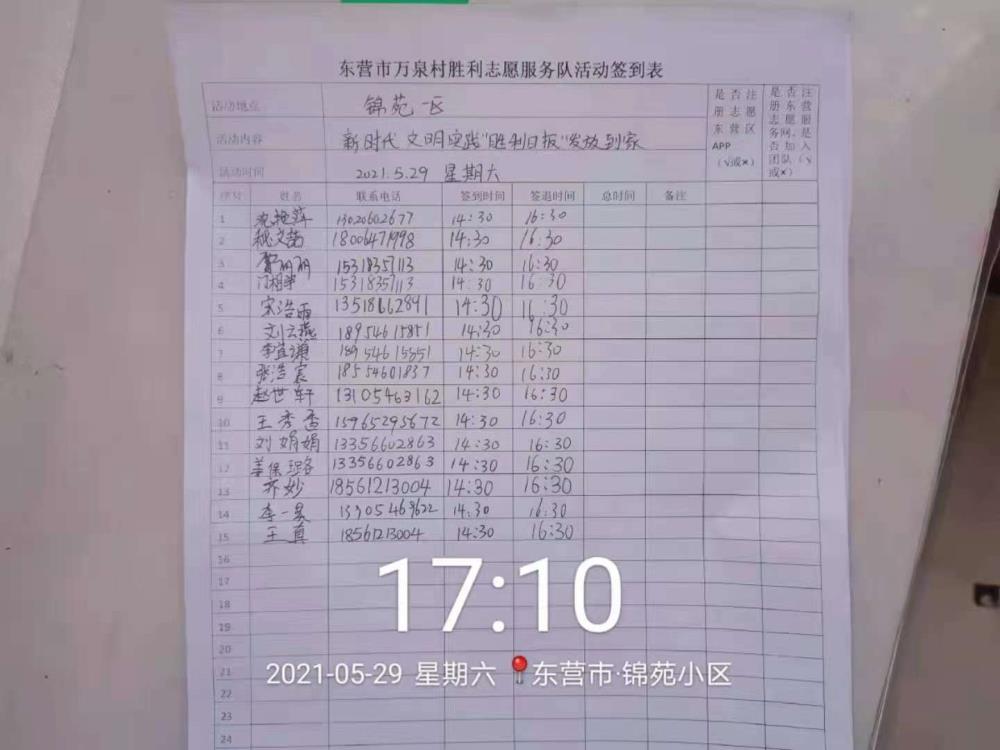 东营市万泉村胜利志愿服务队活动签到表
活动地点 锦苑一区
活动内容 新时代文明实践"胜利日报"发放到家
活动时间 2021.5.29 星期六
是否注册志愿东营区APP(√或×)
是否注册东营志愿服务网,是否加入团队(√或×)
序号 姓名 联系电话 签到时间 签退时间 总时间 备注
1 13020602677 14:30 16:30
2 魏文茜 18006471998 14:30 16:30
3 丽丽 15318357113 14:30 16:30
4 15318357113 14:30 16:30
5 宋浩雨 13518662891 14:30 16:30
6 刘云燕 18954615851 14:30 16:30
7 李宜谦 18954615851 14:30 16:30
8 张浩宸 18554601837 14:30 16:30
9 赵世轩 13105463162 14:30 16:30
10 王秀香 15965295672 14:30 16:30
11 刘娟娟 13356602863 14:30 16:30
12 13356602863 14:30 16:30
13 乔妙 18561213004 14:30 16:30
14 李一 14:30 16:30
15 王真 18561213004 14:30 16:30
16
17
18
19
20
21
22
23
24
17:10
2021-05-29 星期六 东营市·锦苑小区